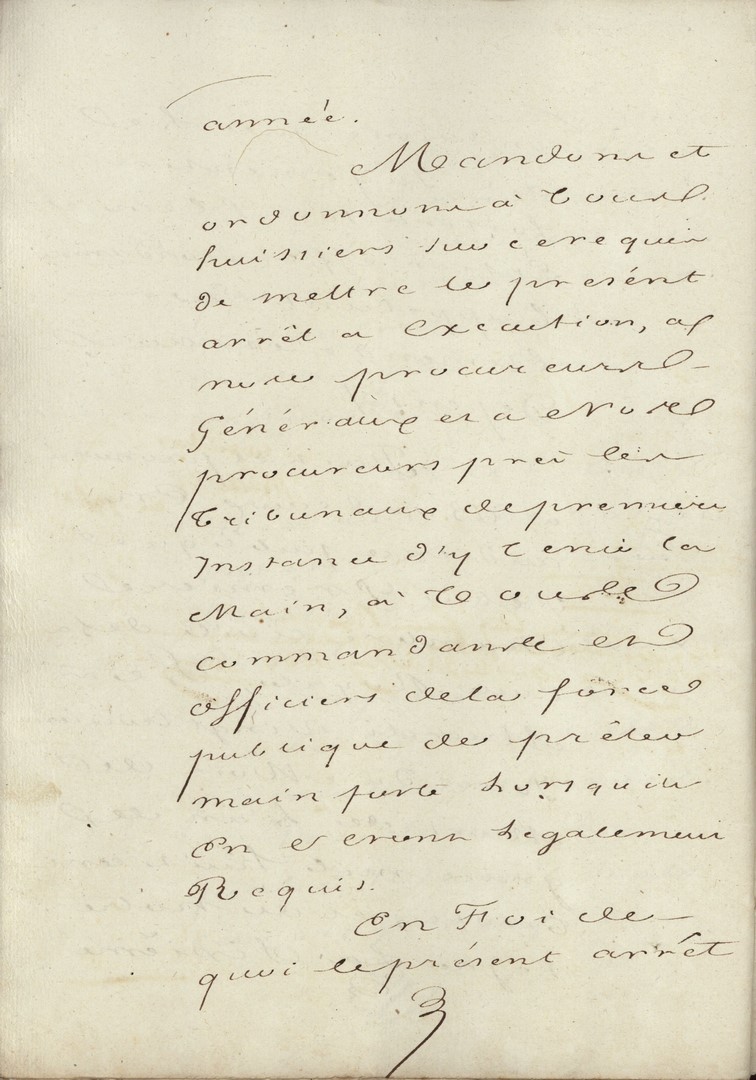 année.
Mandons et
ordonnons à Tous
huissiers sur ce requis
de mettre le présent
arrêt a Execution, a
nos procureurs
Généraux et a Nos
procureurs près les
Tribunaux de premiere
Instance d'y tenir la
Main, à Tous les
commandants et
officiers de la force
publique de prêter
main forte Lorsqu'ils
En Seront Légalement
Requis.
En Foi de
quoi le présent arrêt